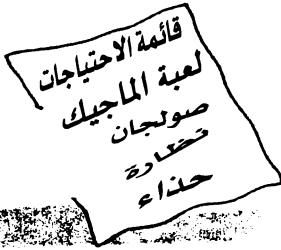 قائمة الاحتياجات
لعبة الماجيك
صولجان
نظارة
حذاء